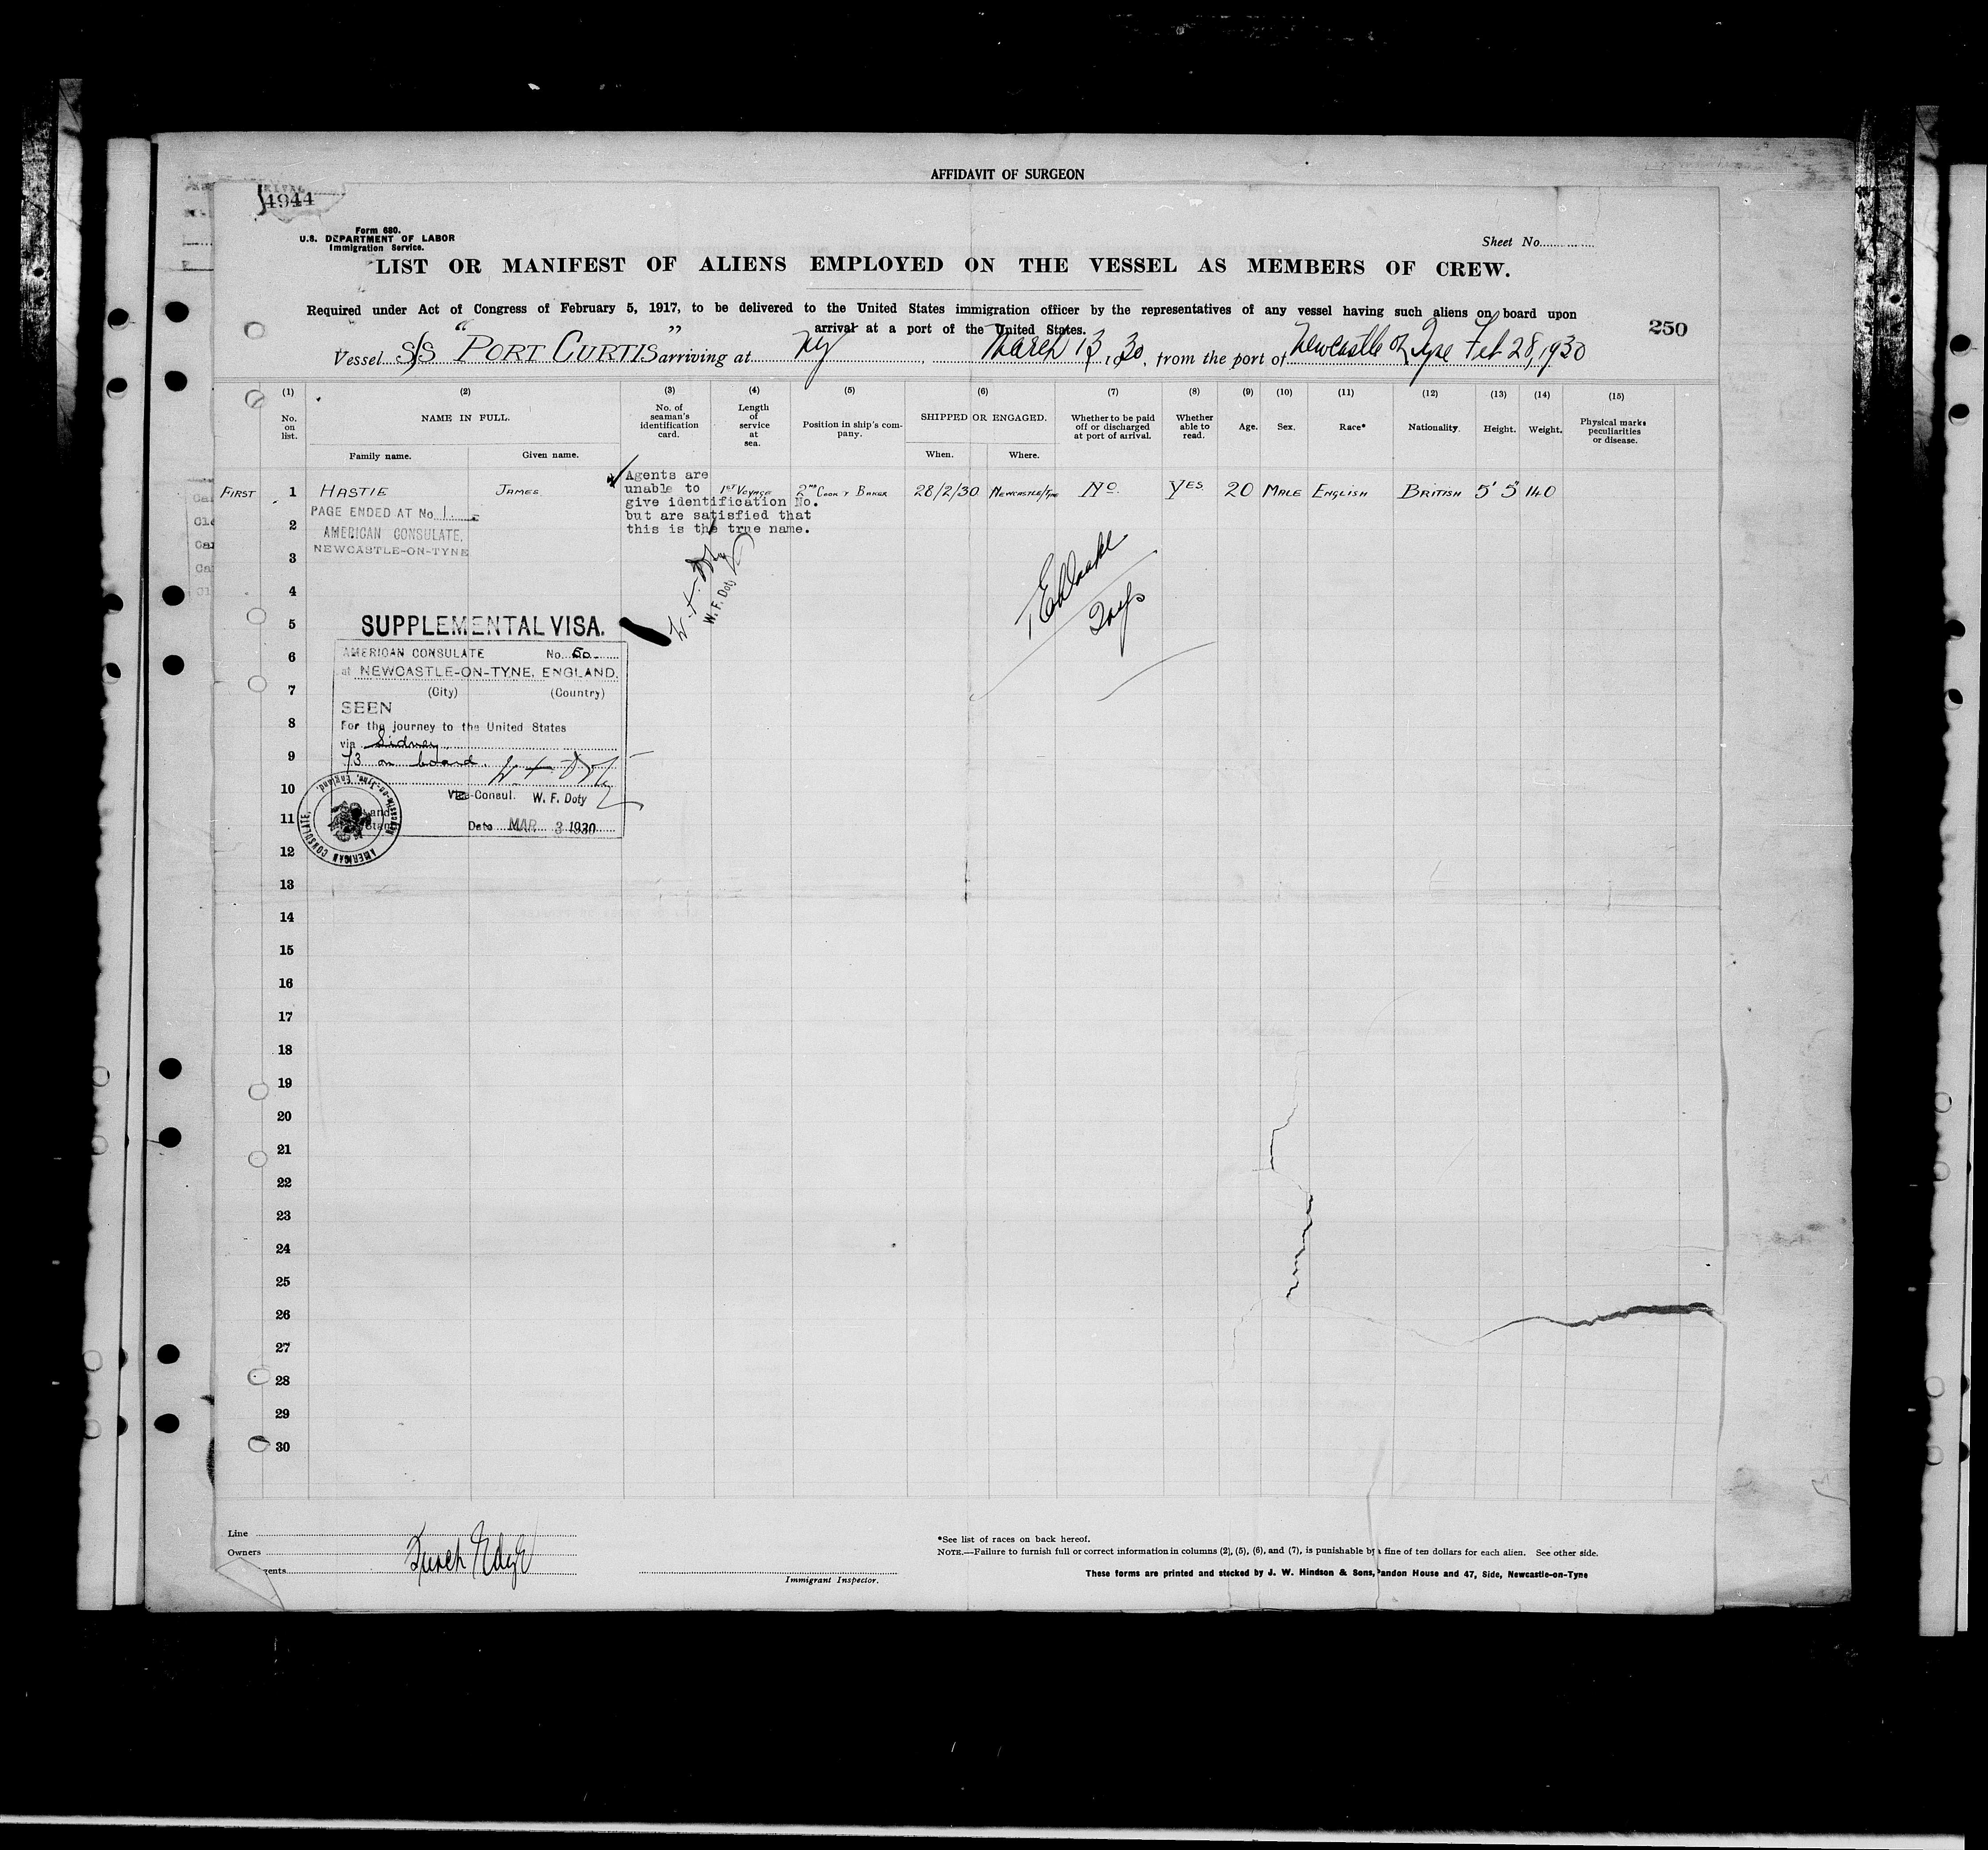 AFFIDAVIT OF SURGEON
4944
Form 680.
U.S. DEPARTMENT OF LABOR
Immigration Service.
Sheet No.
LIST OR MANIFEST OF ALIENS EMPLOYED ON THE VESSEL AS MEMBERS OF CREW.
Required under Act of Congress of February 5, 1917, to be delivered to the United States immigration officer by the representatives of any vessel having such aliens on board upon
arrival at a port of the United States.
250
Vessel S/S "PORT CURTIS" arriving at NY, March 13, 1930, from the port of Newcastle on Tyne Feb 28, 1930
(1) (2) (3) (4) (5) (6) (7) (8) (9) (10) (11) (12) (13) (14) (15)
No. on list.
NAME IN FULL.
Family name. Given name.
No. of seaman's identification card.
Length of service at sea.
Position in ship's company.
SHIPPED OR ENGAGED.
When. Where.
Whether to be paid off or discharged at port of arrival.
Whether able to read.
Age. Sex. Race* Nationality. Height. Weight.
Physical marks peculiarities or disease.
FIRST 1 HASTIE JAMES 1ST VOYAGE 2ND COOK & BAKER 28/2/30 NEWCASTLE/TYNE NO. YES. 20 MALE ENGLISH BRITISH 5' 5" 140
Agents are
unable to
give identification No.
but are satisfied that
this is the true name.
PAGE ENDED AT No. 1.
AMERICAN CONSULATE,
NEWCASTLE-ON-TYNE
W. F. Doty
2
3
4
5
SUPPLEMENTAL VISA.
6
AMERICAN CONSULATE No. 50
at NEWCASTLE-ON-TYNE, ENGLAND.
7
(City) (Country)
SEEN
8
For the journey to the United States
via Sidney
9
73 on board.
10
Vice-Consul. W. F. Doty
11
Date MAR 3 1930
AMERICAN CONSULATE, Newcastle-on-Tyne, England.
12
13
14
15
16
17
18
19
20
21
22
23
24
25
26
27
28
29
30
Line
Owners
gents
Immigrant Inspector.
*See list of races on back hereof.
NOTE.—Failure to furnish full or correct information in columns (2), (5), (6), and (7), is punishable by a fine of ten dollars for each alien. See other side.
These forms are printed and stocked by J. W. Hindson & Sons, Pandon House and 47, Side, Newcastle-on-Tyne